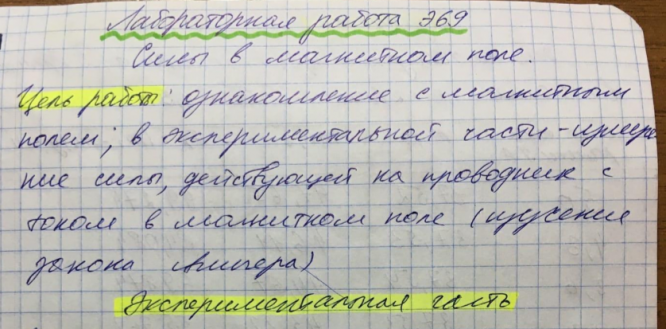 Лабораторная работа Э69
Силы в магнитном поле.
Цель работ: ознакомление с магнитным
полем; в экспериментальной части - измере
ние силы, действующей на проводник с
током в магнитном поле (изучение
закона Ампера)
Экспериментальная часть